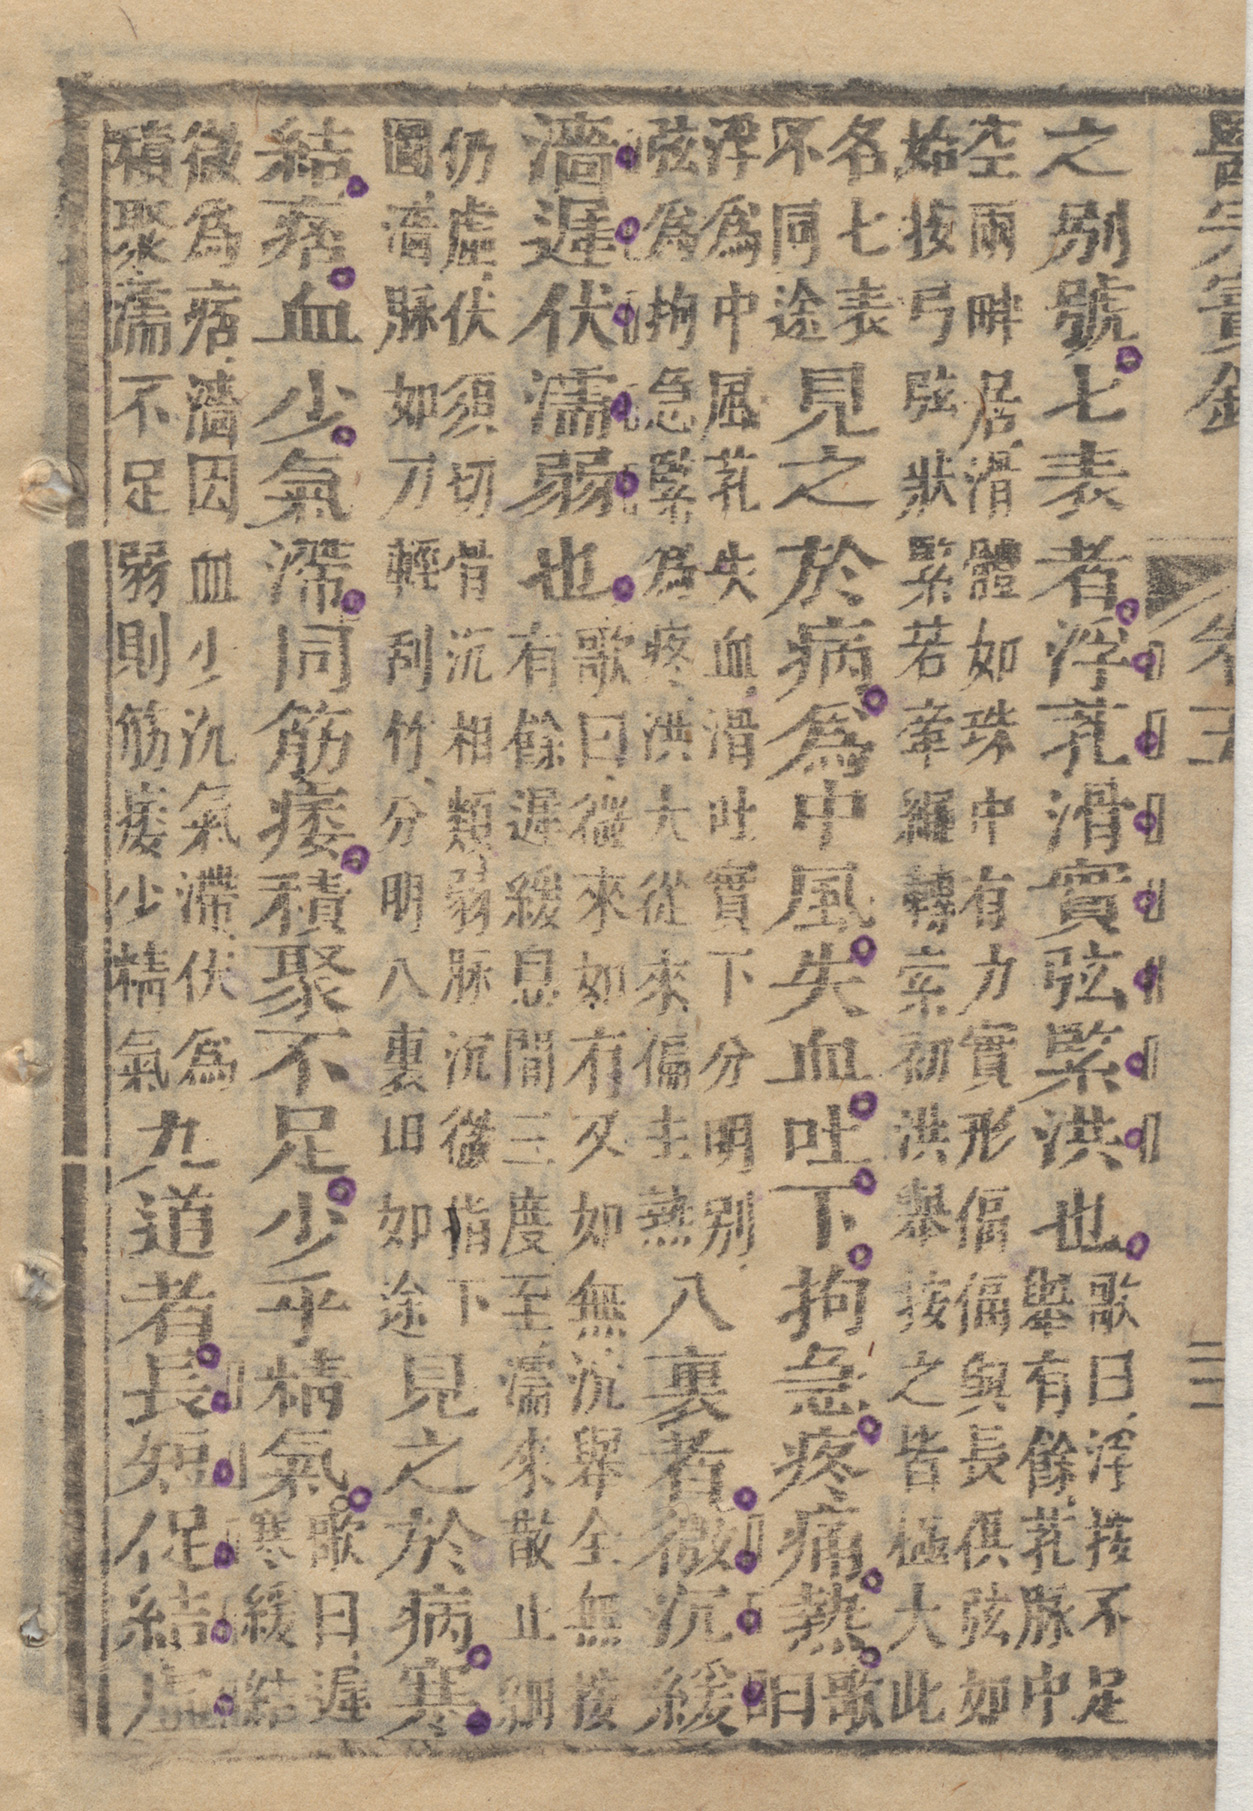 醫宗寶 卷 三
之別號七表者浮芤滑實弦緊洪也歌曰浮按不足
舉有餘芤脉中
空兩畔居滑體如珠中有力實形偪偪與長俱弦如
始按弓弦狀緊若牽繩轉索初洪舉按之皆極大此
名七表
不同途見之於病爲中風失血吐下拘急疼痛熱歌
曰
浮爲中風芤失血滑吐實下分明别
弦爲拘急緊爲疼洪大從來偏主熱八裏者微沉緩
濇遲伏濡弱也歌曰微來如有又如無沉舉全無按
有餘遲緩息間三度至濡來散止細
仍虛伏須切骨沉相類弱脉沉微指下
圖濇脉如刀輕刮竹分明八裏如途見之於病寒
結痞血少氣滯同筋痿積聚不足少乎精氣歌曰遲
寒緩結
微爲痞濇因血少沉氣滯伏爲
積聚濡不足弱則筋痿少精氣九道者長短促結虛